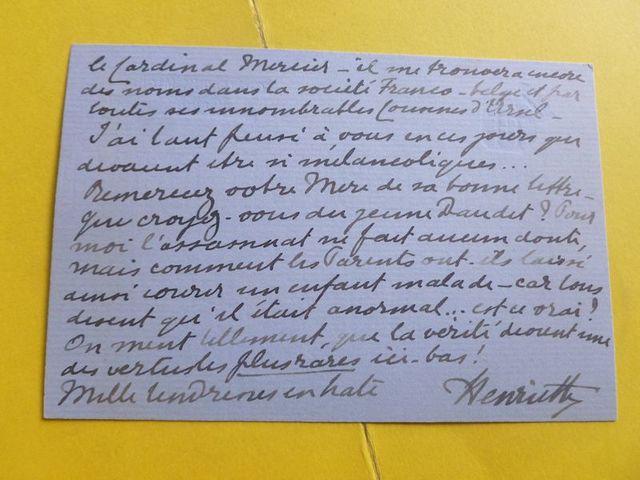 le Cardinal Mercier - il me trouvera encore
des noms dans la société Franco-belge et par
toutes ses innombrables Cousines d'Ursel -
J'ai tant pensé à vous en ces jours qui
devaient être si mélancoliques...
Remerciez votre Mère de sa bonne lettre -
que croyez-vous du jeune Daudet? Pour
moi l'assassinat ne fait aucun doute,
mais comment les Parents ont-ils laissé
ainsi courir un enfant malade - car tous
disent qu'il était anormal... est ce vrai?
On ment tellement, que la vérité devient une
des vertus les plus rares ici-bas!
Mille tendresses en hâte Henriette